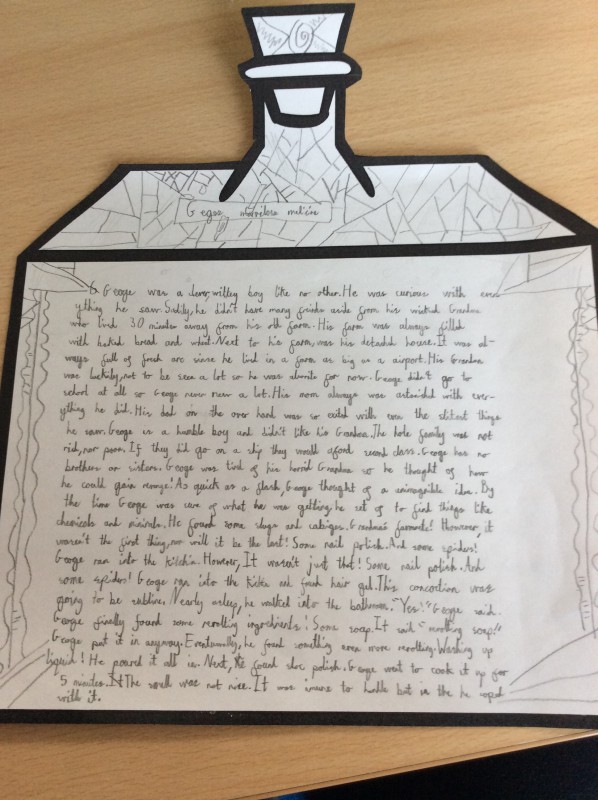 G eoge marvilose melicie
George was a clever, willey boy like no other. He was curious with ever
ything he saw. Saddly, he didn't have many friends aside from his wicked Grandma
who lived 30 minutes away from his old farm. His farm was always filled
with baked bread and wheat. Next to his farm, was his detachd house. It was al-
ways full of fresh are since he lived in a farm as big as a airport. His Grandma
was luckily, not to be seen a lot so he was alwrite for now. George didn't go to
school at all so George never new a lot. His mom always was astonished with ever-
ything he did. His dad on the over hand was so exited with even the slitest things
he saw. George is a humble boy and didn't like his Grandma. The hole family was not
rich, nor poor. If they did go on a ship they would aford second class. George has no
brothers or sisters. George was tird of his horrid Grandma so he thought of how
he could gain revenge! As quick as a flash, George thought of a unimaginible idea. By
the time George was sure of what he was getting, he set of to find things like
chemicals and minirals. He found some slugs and cabiges. Grandma's favourite! However, it
wasen't the first thing, nor will it be the last! Some nail polish. And some spiders!
George ran into the kitchin. However, It wasn't just that! Some nail polish. And
some spider! George ran into the kichen and found hair gel. This concoction was
going to be sublime. Nearly asleep, he walked into the bathroom. "Yes!" George said.
George finally found some revolting ingredients! Some soap. It said "revolting soap!"
George put it in anyway. Eventually, he found something even more revolting! Washing up
liquid! He poured it all in. Next, he found shoe polish. George went to cook it up for
5 minutes. The smell was not nice. It was insane to handle but in the he coped
with it.